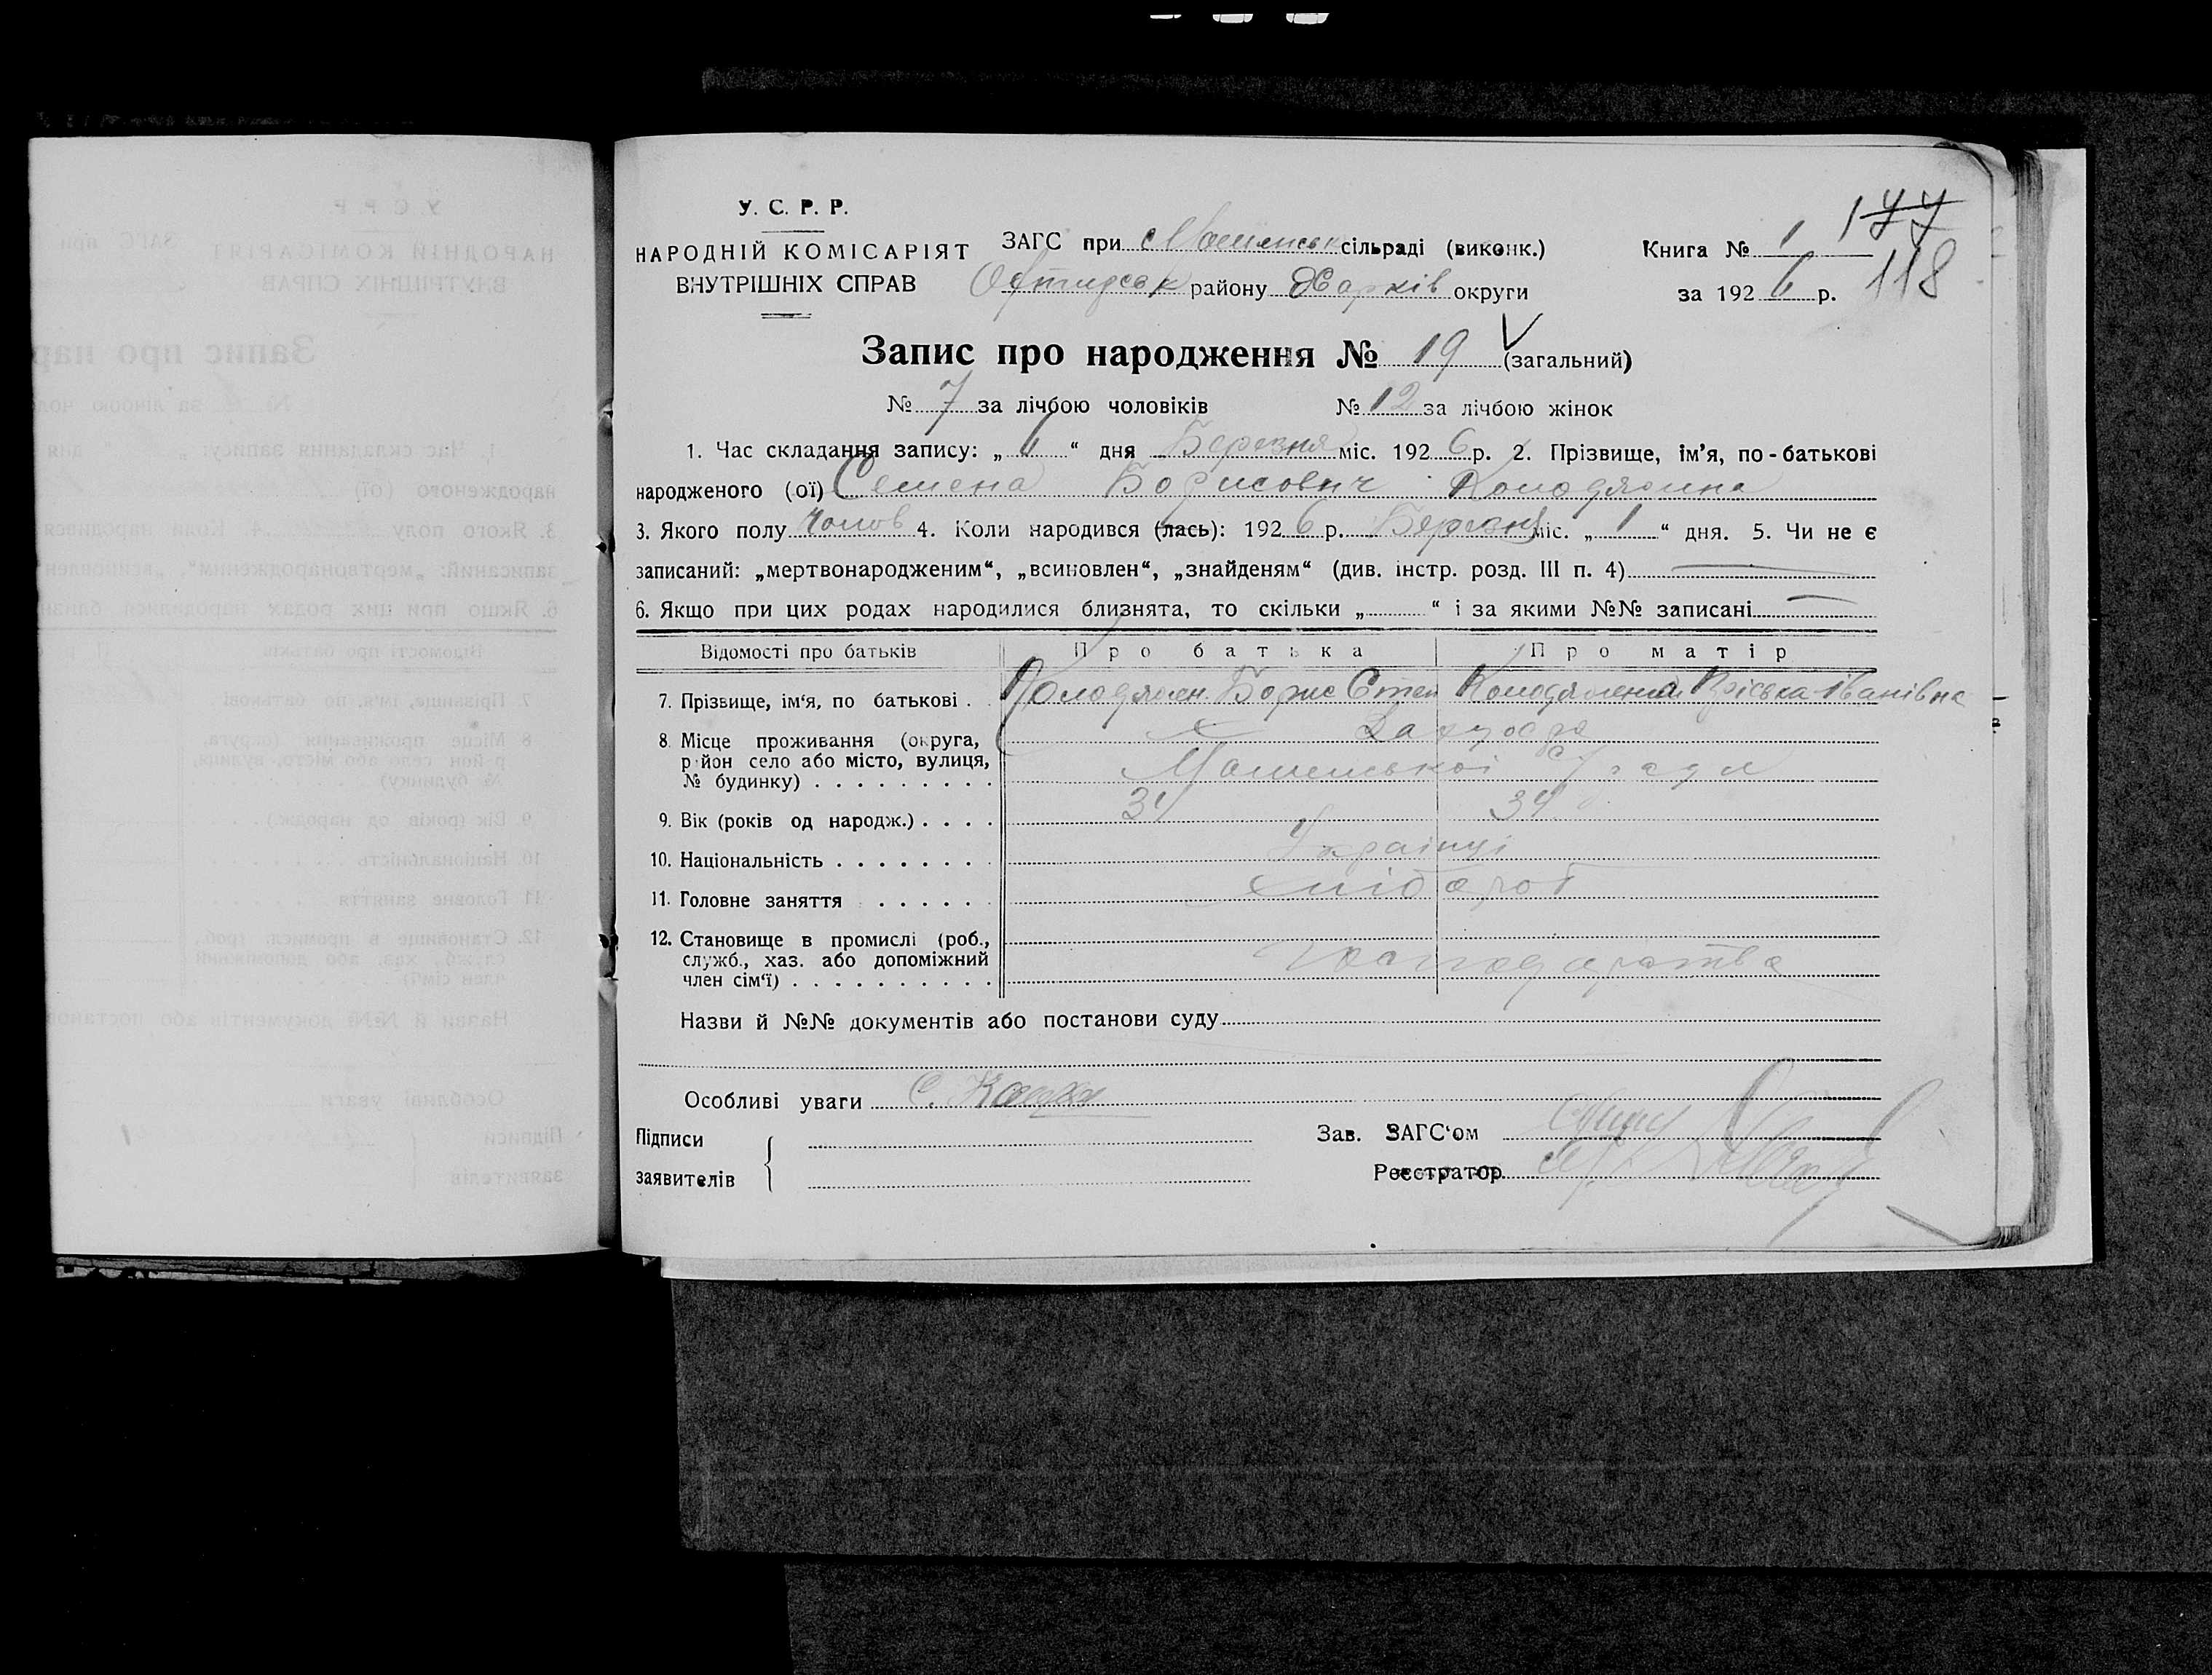 У. С. Р. Р.
НАРОДНІЙ КОМІСАРІЯТ
ВНУТРІШНІХ СПРАВ
ЗАГС при сільраді (виконк.)
району Харків округи
Книга № 1 177
за 1926 р. 118
Запис про народження № 19 (загальний)
№ 7 за лічбою чоловіків № 12 за лічбою жінок
1. Час складання запису: „ 6 “ дня Березня міс. 1926 р. 2. Прізвище, ім’я, по-батькові
народженого (ої) Семена Борисович
3. Якого полу Чолов 4. Коли народився (лась): 1926 р. міс. „ 1 “ дня. 5. Чи не є
записаний: „мертвонародженим“, „всиновлен“, „знайденям“ (див. інстр. розд. III п. 4)
6. Якщо при цих родах народилися близнята, то скільки „ “ і за якими №№ записані
Відомості про батьків Про батька Про матір
7. Прізвище, ім‘я, по батькові . Борис Степ Іванівна
8. Місце проживання (округа,
район село або місто, вулиця,
№ будинку) . . . . . . . . .
9. Вік (років од народж.) . . . . 34 34
10. Національність . . . . . . . . Українці
11. Головне заняття . . . . . . хлібороб
12. Становище в промислі (роб.,
служб., хаз. або допоміжний
член сім‘ї) . . . . . . . . . . господарства
Назви й №№ документів або постанови суду
Особливі уваги
Підписи
заявителів
Зав. ЗАГС‘ом
Реєстратор